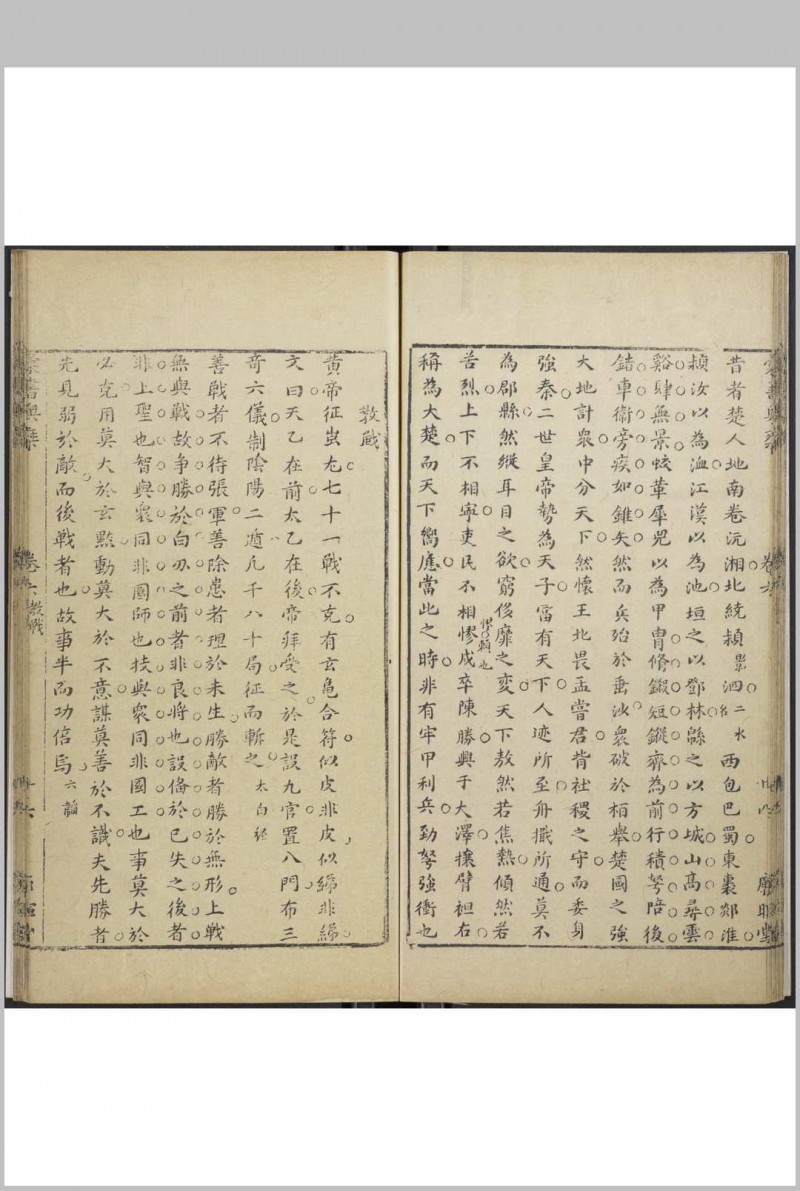 昔者楚人地南卷沅湘北繞潁泗二水名西包巴蜀東裹郯淮
潁汝以為洫江漢以為池垣之以鄧林緜之以方城山高尋雲
谿肆無景蛟革犀兕以為甲冑脩鎩短鏦齊為前行積弩陪後
錯車衛旁疾如錐矢然而兵殆於垂沙衆破於栢舉楚國之强
大地計衆中分天下然懷王北畏孟嘗君背社稷之守而委身
強秦二世皇帝勢為天子富有天下人迹所至舟檝所通莫不
為郡縣然縱耳目之欲窮侈靡之变天下敖然若焦熱傾然若
苦烈上下不相寧吏民不相憀憀賴也戍卒陳勝興于大澤攘臂袒右
稱為大楚而天下嚮應當此之時非有牢甲利兵劲弩強衝也
教戰
黄帝征蚩尤七十一戰不克有玄龜合符似皮非皮似綈非綈
文曰天乙在前太乙在後帝拜受之於是設九宫置八門布三
奇六儀制陰陽二遁凡千八十局征而斬之太白經
善戰者不待張軍善除患者理於未生勝敵者勝於無形上戰
無與戰故争勝於白刃之前者非良将也設備於已失之後者
非上聖也智與衆同非國師也技與衆同非國工也事莫大於
必克用莫大於玄黙動莫大於不意謀莫善於不識夫先勝者
先見弱於敵而後戰者也故事半而功倍焉六韜
卷六教戰